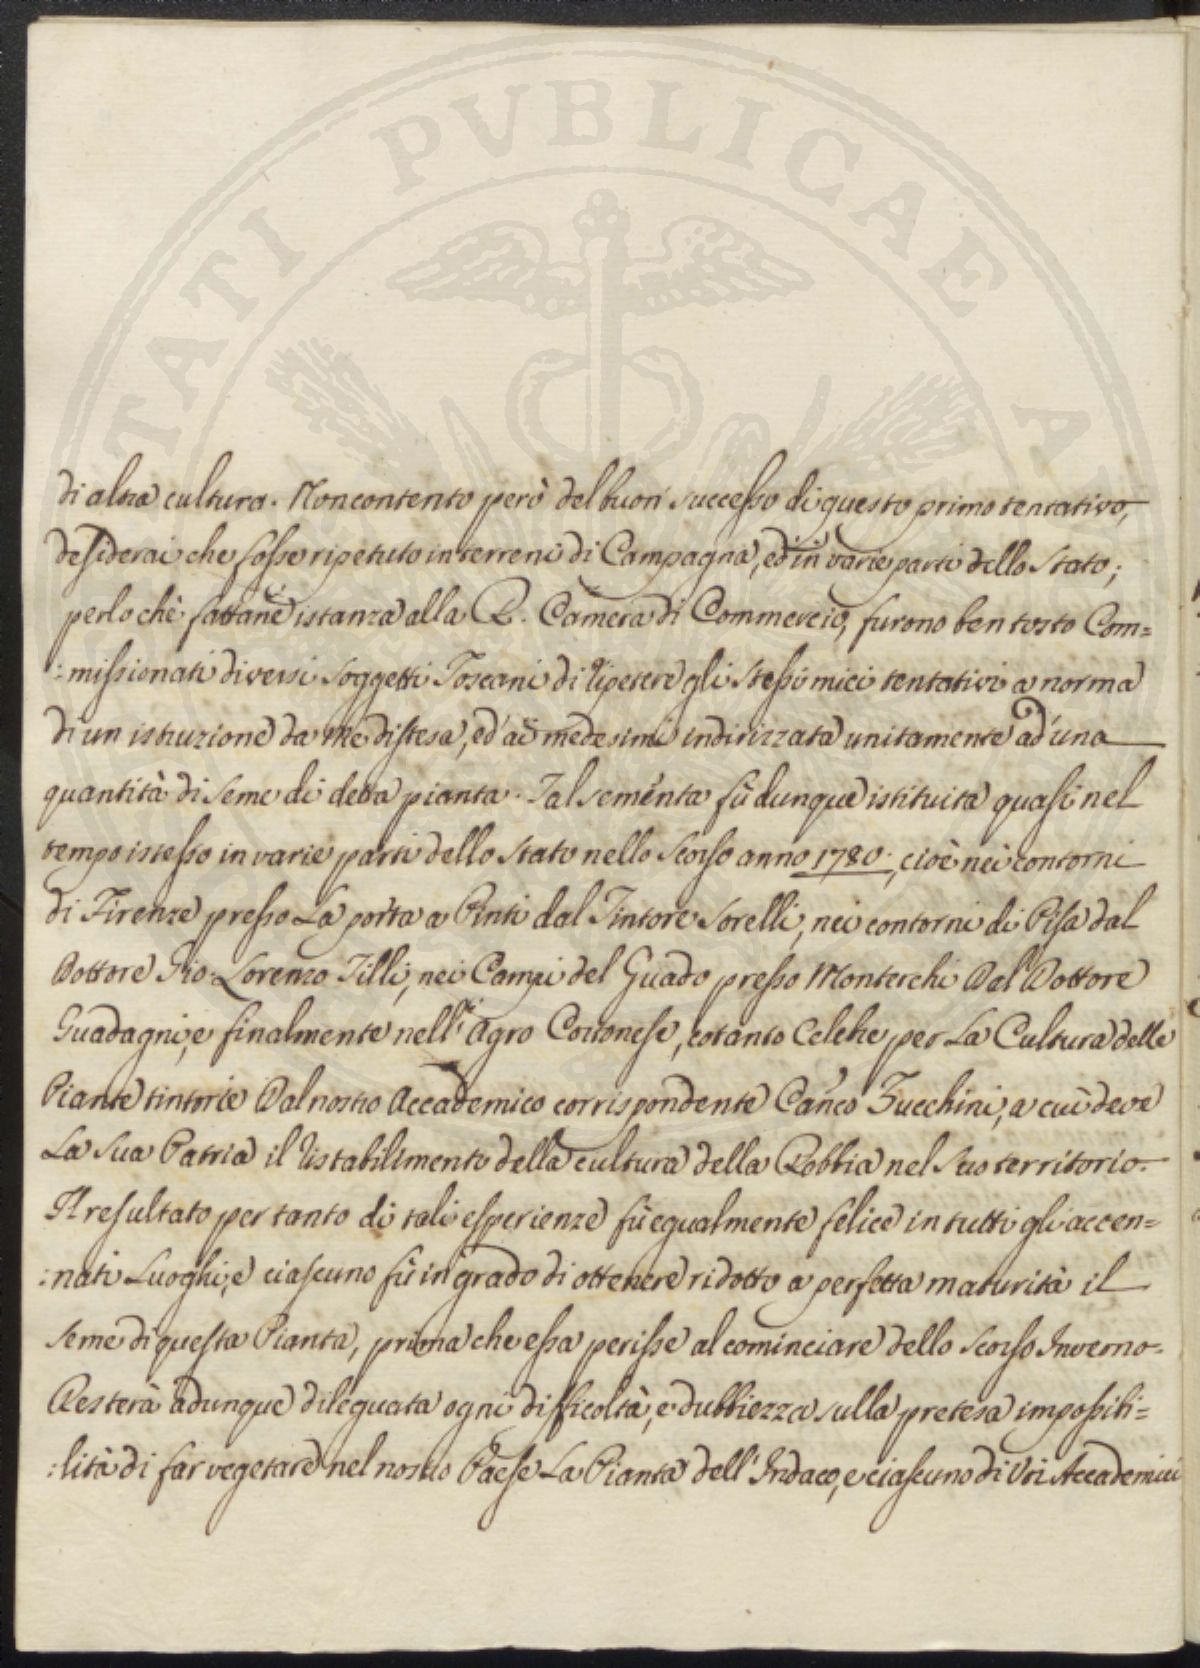 TATI PVBLICAE A
di altra cultura. Non contento però del buon successo di questo primo tentativo,
desiderai che fosse ripetuto in terreni di Campagna, ed in varie parti dello Stato;
perlochè fattane istanza alla R. Camera di Commercio, furono ben tosto Com=
:missionati diversi soggetti Toscani di ripetere gli stessi miei tentativi a norma
di un istruzione da me distesa, ed ai medesimi indirizzata unitamente ad una
quantità di seme di detta pianta. Tal sementa fù dunque istituita quasi nel
tempo istesso in varie parti dello Stato nello scorso anno 1780. cioè nei contorni
di Firenze presso La porta a Pinti dal Tintore Sorelli, nei contorni di Pisa dal
Dottore Gio: Lorenzo Tilli, nei Campi del Guado presso Monterchi Dal Dottore
Guadagni, e finalmente nell' Agro Cortonese, cotanto Celebre per La Cultura delle
Piante tintorie Dal nostro Accademico corrispondente Can.co Zucchini, a cui deve
La sua Patria il ristabilimento della cultura della Robbia nel suo territorio.
Il resultato per tanto di tali esperienze fù egualmente felice in tutti gli accen=
:nati Luoghi, e ciascuno fù in grado di ottenere ridotto a perfetta maturità il
seme di questa Pianta, prima che essa perisse al cominciare dello scorso Inverno.
Resterà adunque dileguata ogni difficoltà, e dubbiezza sulla pretesa impossibi=
:lità di far vegetare nel nostro Paese La Pianta dell' Indaco, e ciascuno di Voi Accademici